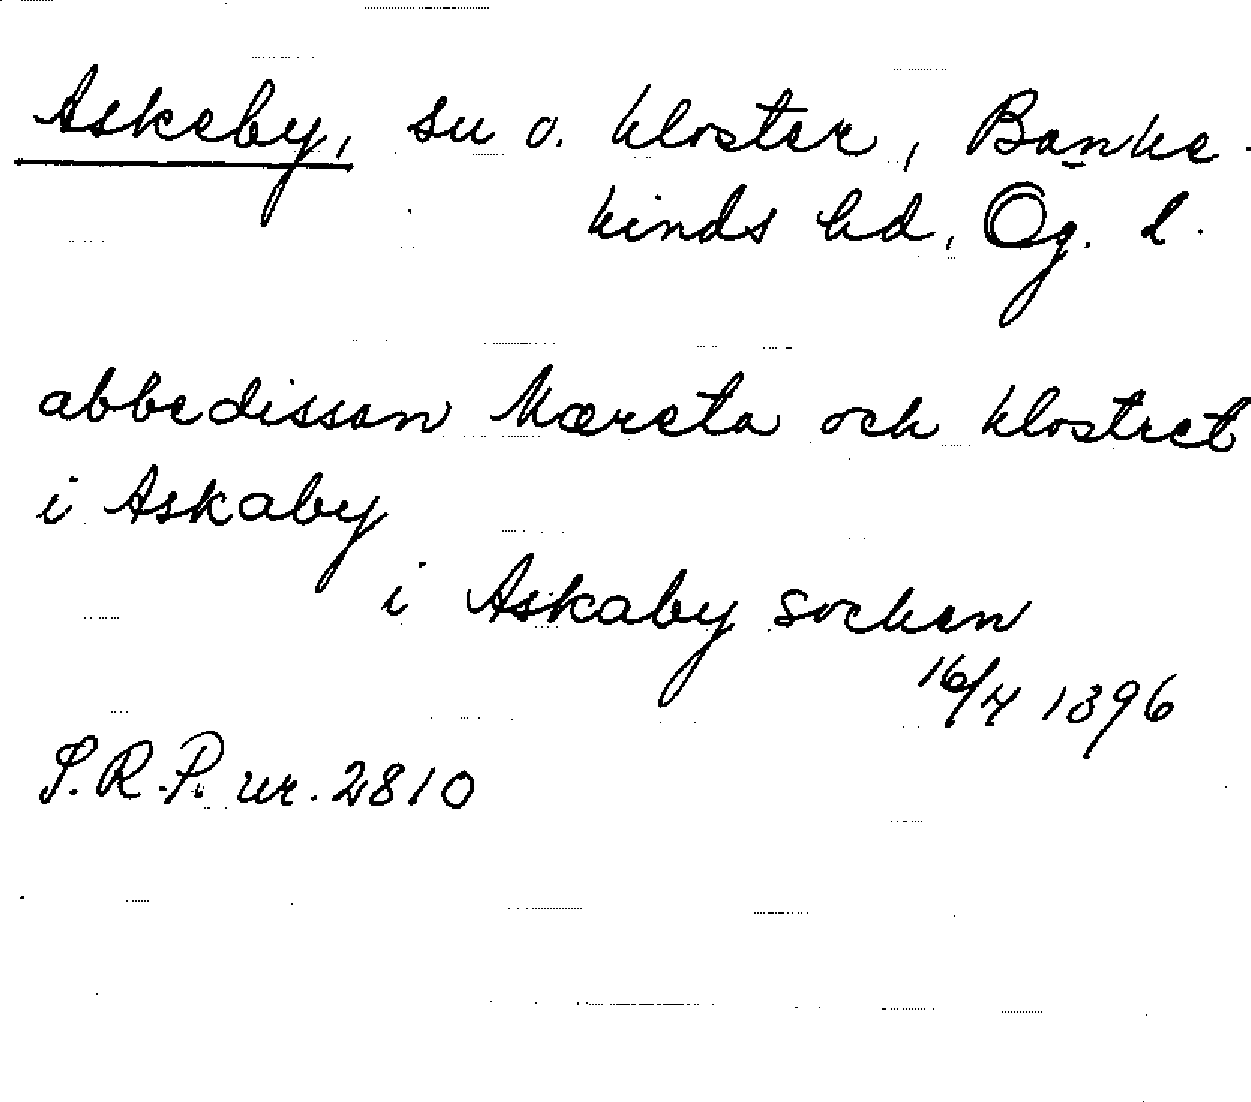 Askeby, sn o. kloster, Banke-
kinds hd, Ög. l.
abbedissan Mæreta och klostret
i Askaby
i Askaby socken
16/4 1396
S.R.P. nr. 2810